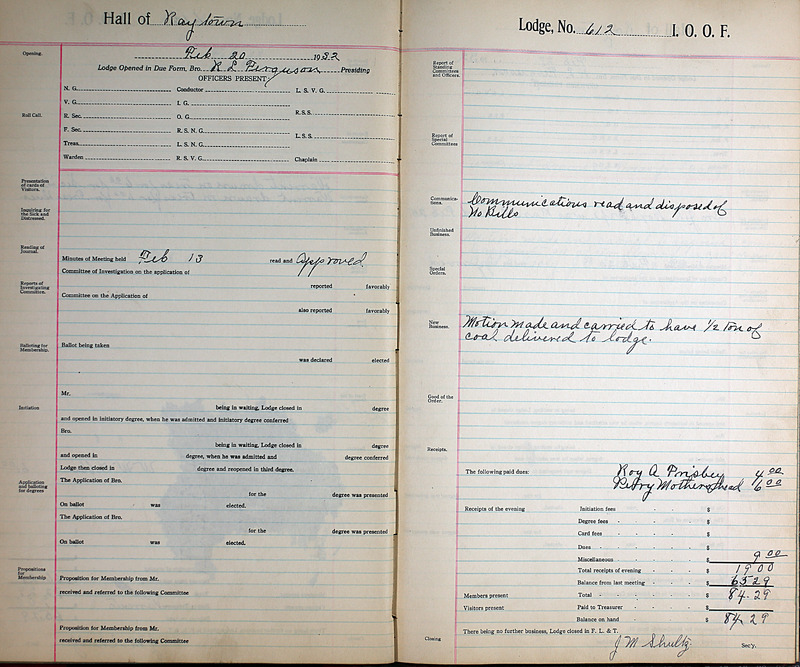 Hall of Raytown
Opening.
Feb 20 1932
Lodge Opened in Due Form, Bro. R L Ferguson Presiding
OFFICERS PRESENT:
Roll Call.
N. G. Conductor L. S. V. G.
V. G. I. G.
R. Sec. O. G. R.S.S.
F. Sec. R. S. N. G. L.S.S.
Treas. L. S. N. G.
Warden R. S. V. G. Chaplain
Presentation of cards of Visitors.
Inquiring for the Sick and Distressed.
Reading of Journal.
Minutes of Meeting held Feb 13 read and approved
Committee of Investigation on the application of
reported favorably
Reports of Investigating Committee.
Committee on the Application of
also reported favorably
Balloting for Membership.
Ballot being taken
was declared elected
Mr.
Initiation
being in waiting, Lodge closed in degree
and opened in initiatory degree, when he was admitted and initiatory degree conferred
Bro.
being in waiting, Lodge closed in degree
and opened in degree, when he was admitted and degree conferred
Lodge then closed in degree and reopened in third degree.
Application and balloting for degrees
The Application of Bro.
for the degree was presented
On ballot was elected.
The Application of Bro.
for the degree was presented
On ballot was elected.
Propositions for Membership
Proposition for Membership from Mr.
received and referred to the following Committee
Proposition for Membership from Mr.
received and referred to the following Committee
Lodge, No. 612 I. O. O. F.
Report of Standing Committees and Officers.
Report of Special Committees
Communications.
Communications read and disposed of
No Bills
Unfinished Business.
Special Orders.
New Business.
Motion made and carried to have 1/2 ton of
coal delivered to lodge.
Good of the Order.
Receipts.
The following paid dues: Roy A Prisbey 4.00
Petry Mothershead 6.00
Receipts of the evening Initiation fees $
Degree fees $
Card fees $
Dues $
Miscellaneous $ 9.00
Total receipts of evening $ 19.00
Balance from last meeting $ 65 29
Members present Total $ 84.29
Visitors present Paid to Treasurer $
Balance on hand $ 84 29
There being no further business, Lodge closed in F. L. & T.
Closing
J M Shultz Sec'y.